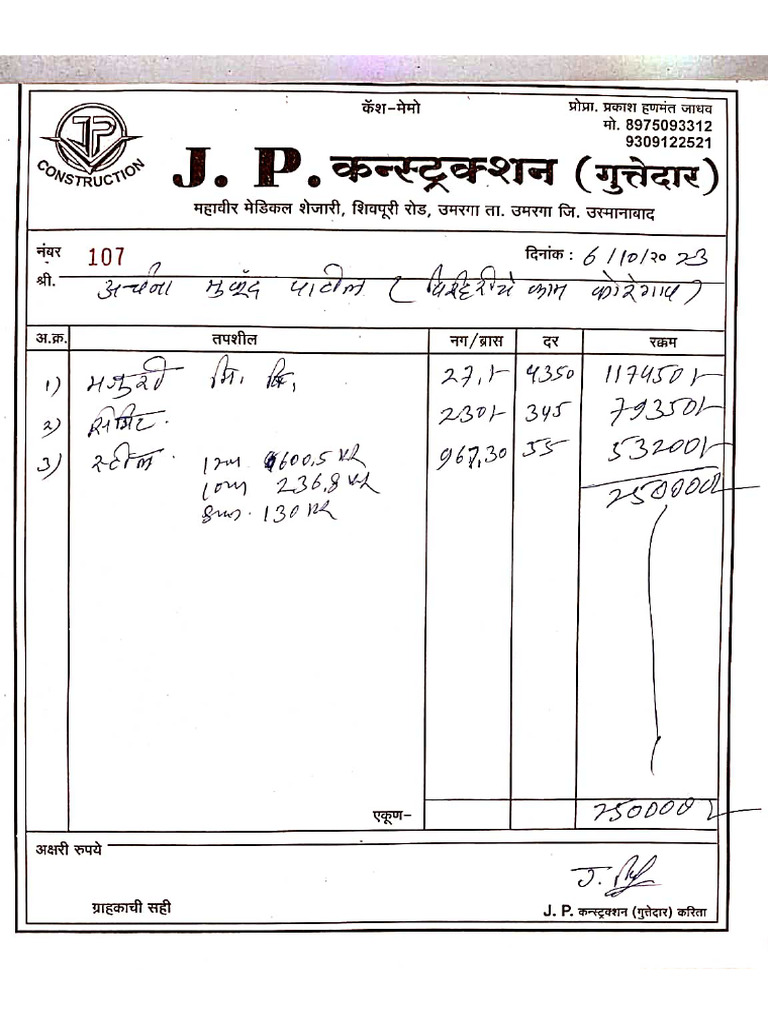 कॅश-मेमो
प्रोप्रा. प्रकाश हणमंत जाधव
मो. 8975093312
9309122521
JP
CONSTRUCTION
J. P. कन्स्ट्रक्शन (गुत्तेदार)
महावीर मेडिकल शेजारी, शिवपूरी रोड, उमरगा ता. उमरगा जि. उस्मानाबाद
नंबर 107 दिनांक : 6/10/२० २३
श्री. अर्चना मुकुंद पाटील ( विहिरीचे काम कोरेगाव)
अ.क्र. तपशील नग/ब्रास दर रक्कम
1) मजुरी 27.1- 4350 117450/-
2) सिमेंट. 230/- 345 79350/-
3) स्टील. 12mm 600.5 967.30 55 53200/-
10mm 236.8 250000/-
8mm. 130
एकूण- 250000/-
अक्षरी रुपये
ग्राहकाची सही J. P. कन्स्ट्रक्शन (गुत्तेदार) करिता